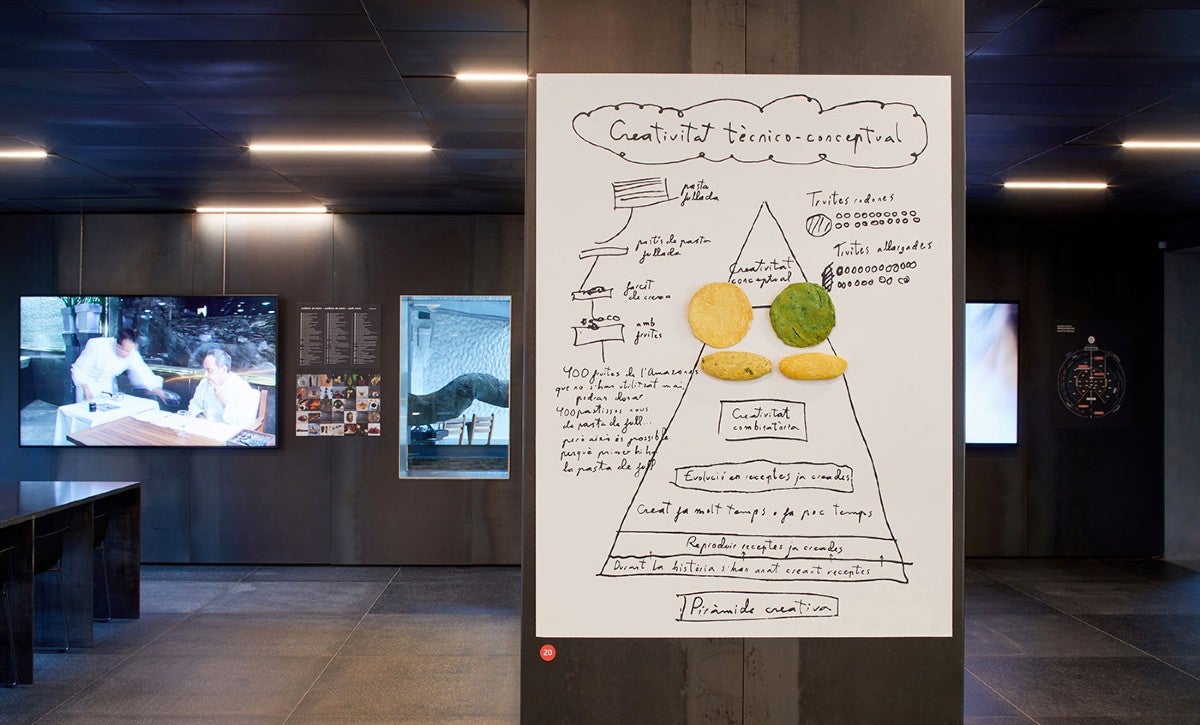 Creativitat tècnico-conceptual
pasta
fullada
pastís de pasta
fullada
farcit
de crema
amb
fruites
400 fruites de l'Amazones
que no s'han utilitzat mai,
podran donar
400 pastissos nous
de pasta de full...
però això és possible
perquè primer hi ha
la pasta de full
Truites rodones
Truites allargades
Creativitat
conceptual
Creativitat
combinatòria
Evolució en receptes ja creades
Creat fa molt temps o fa poc temps
Reproduir receptes ja creades
Durant la història s'han anat creant receptes
Piràmide creativa
29